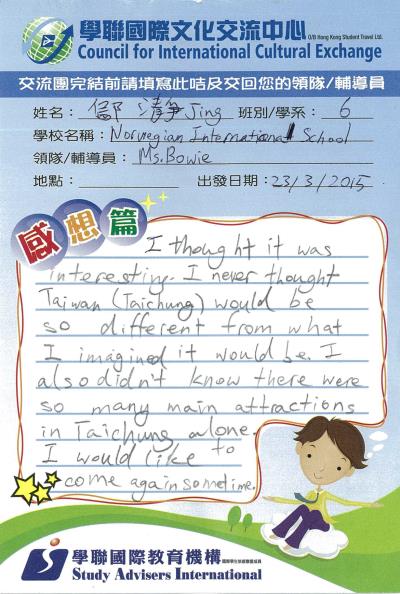 學聯國際文化交流中心 O/B Hong Kong Student Travel Ltd.
Council for International Cultural Exchange
交流團完結前請填寫此咭及交回您的領隊/輔導員
姓名: 清爭 Jing 班別/學系: 6
學校名稱: Norwegian International School
領隊/輔導員: Ms. Bowie
地點: 出發日期: 23/3/2015
感想篇
I thought it was
interesting. I never thought
Taiwan (Taichung) would be
so different from what
I imagined it would be. I
also didn't know there were
so many main attractions
in Taichung alone.
I would like to
come again sometime.
學聯國際教育機構
Study Advisers International